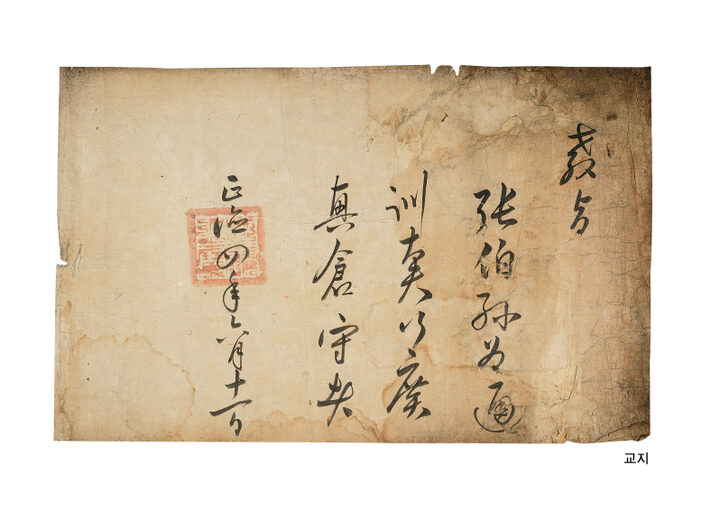 敎旨
張伯孫爲通
訓大夫行廣
興倉守者
正德四年六月十一日
교지